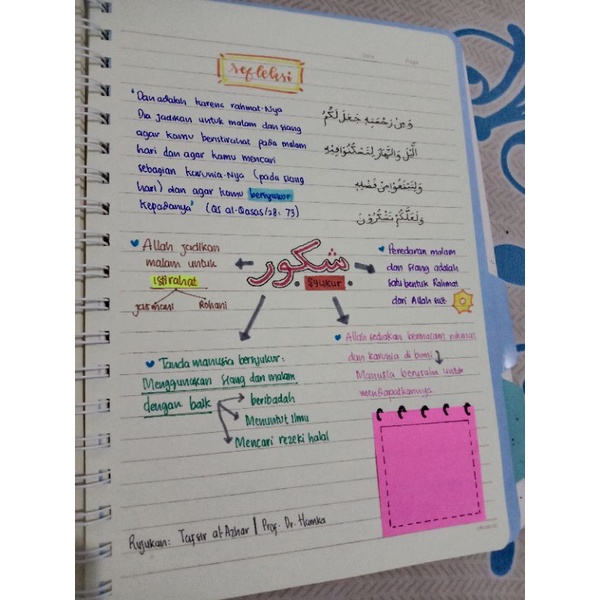 refleksi
"Dan adalah karena rahmat-Nya
Dia jadikan untuk malam dan siang
agar kamu beristirahat pada malam
hari dan agar kamu mencari
sebagian karunia-Nya (pada siang
hari) dan agar kamu bersyukur
kepadanya" (QS al-Qasas/28: 73)
وَمِن رَّحْمَتِهِ جَعَلَ لَكُمُ
الَّيْلَ وَالنَّهَارَ لِتَسْكُنُوا فِيْهِ
وَلِتَبْتَغُوا مِنْ فَضْلِهِ
وَلَعَلَّكُمْ تَشْكُرُوْنَ
Allah jadikan
malam untuk
istirahat
jasmani Rohani
شكور
Syukur
Peredaran malam
dan siang adalah
satu bentuk Rahmat
dari Allah swt
Tanda manusia bersyukur:
Menggunakan siang dan malam
dengan baik
beribadah
Menuntut Ilmu
Mencari rezeki halal
Allah sediakan bermacam nikmat
dan karunia di bumi
Manusia berusaha untuk
mendapatkannya
Rujukan: Tafsir al-Azhar | Prof. Dr. Hamka